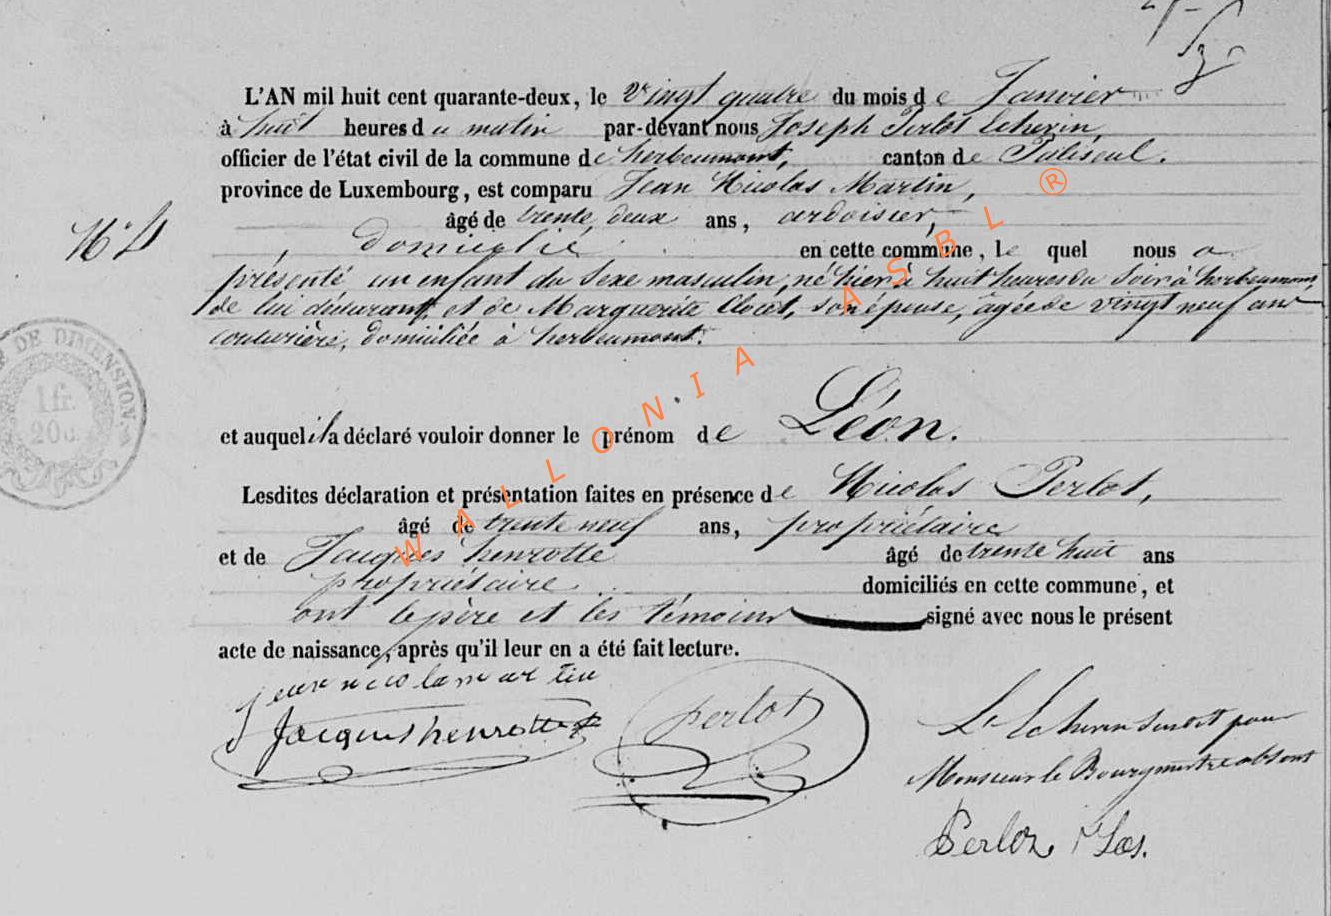 L'AN mil huit cent quarante-deux, le vingt quatre du mois de Janvier
à huit heures du matin par-devant nous Joseph Perlot Echevin,
officier de l'état civil de la commune de herbeumont, canton de Paliseul.
province de Luxembourg, est comparu Jean Nicolas Martin,
âgé de trente deux ans, ardoisier
N° 4
domicilié en cette commune, le quel nous a
présenté un enfant du sexe masculin, né hier à huit heures du soir à herbeumont,
de lui déclarant, et de Marguerite Clocet, son épouse, âgée de vingt neuf ans
couturière, domiciliée à herbeumont.
DE DIMENSION.
1 fr.
20 c.
et auquel il a déclaré vouloir donner le prénom de Léon.
Lesdites déclaration et présentation faites en présence de Nicolas Perlot,
âgé de trente neuf ans, propriétaire
et de Jacques henrotte âgé de trente huit ans
propriétaire domiciliés en cette commune, et
ont le père et les témoins signé avec nous le présent
acte de naissance, après qu'il leur en a été fait lecture.
jean nicolas martin
Jacques henrotte
perlot
Le Echevin pour
Monsieur le Bourgmestre absent
Perlot
WALLONIA ASBL ®